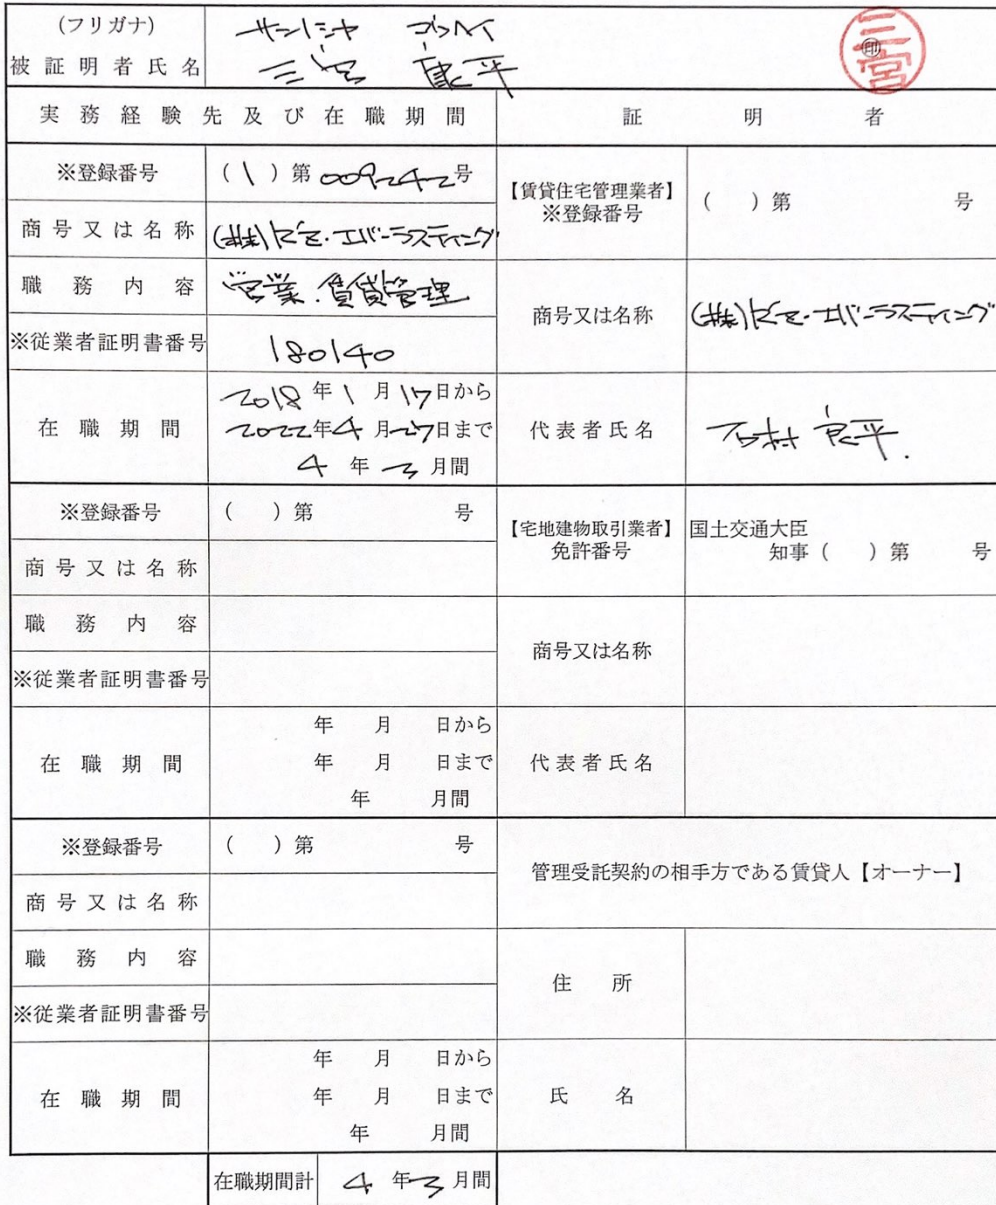 (フリガナ)
被証明者氏名 三宮 康平 ㊞ 三宮
実務経験先及び在職期間 証明者
※登録番号 (1)第009242号
商号又は名称 (株)ビーエバーラスティング
職務内容 営業.賃貸管理
※従業者証明書番号 180140
在職期間 2018年1月17日から
2022年4月27日まで
4年3月間
【賃貸住宅管理業者】
※登録番号 ( )第 号
商号又は名称
代表者氏名
※登録番号 ( )第 号
商号又は名称
職務内容
※従業者証明書番号
在職期間 年 月 日から
年 月 日まで
年 月間
【宅地建物取引業者】
免許番号 国土交通大臣
知事( )第 号
商号又は名称
代表者氏名
※登録番号 ( )第 号
商号又は名称
職務内容
※従業者証明書番号
在職期間 年 月 日から
年 月 日まで
年 月間
管理受託契約の相手方である賃貸人【オーナー】
住所
氏名
在職期間計 4年3月間